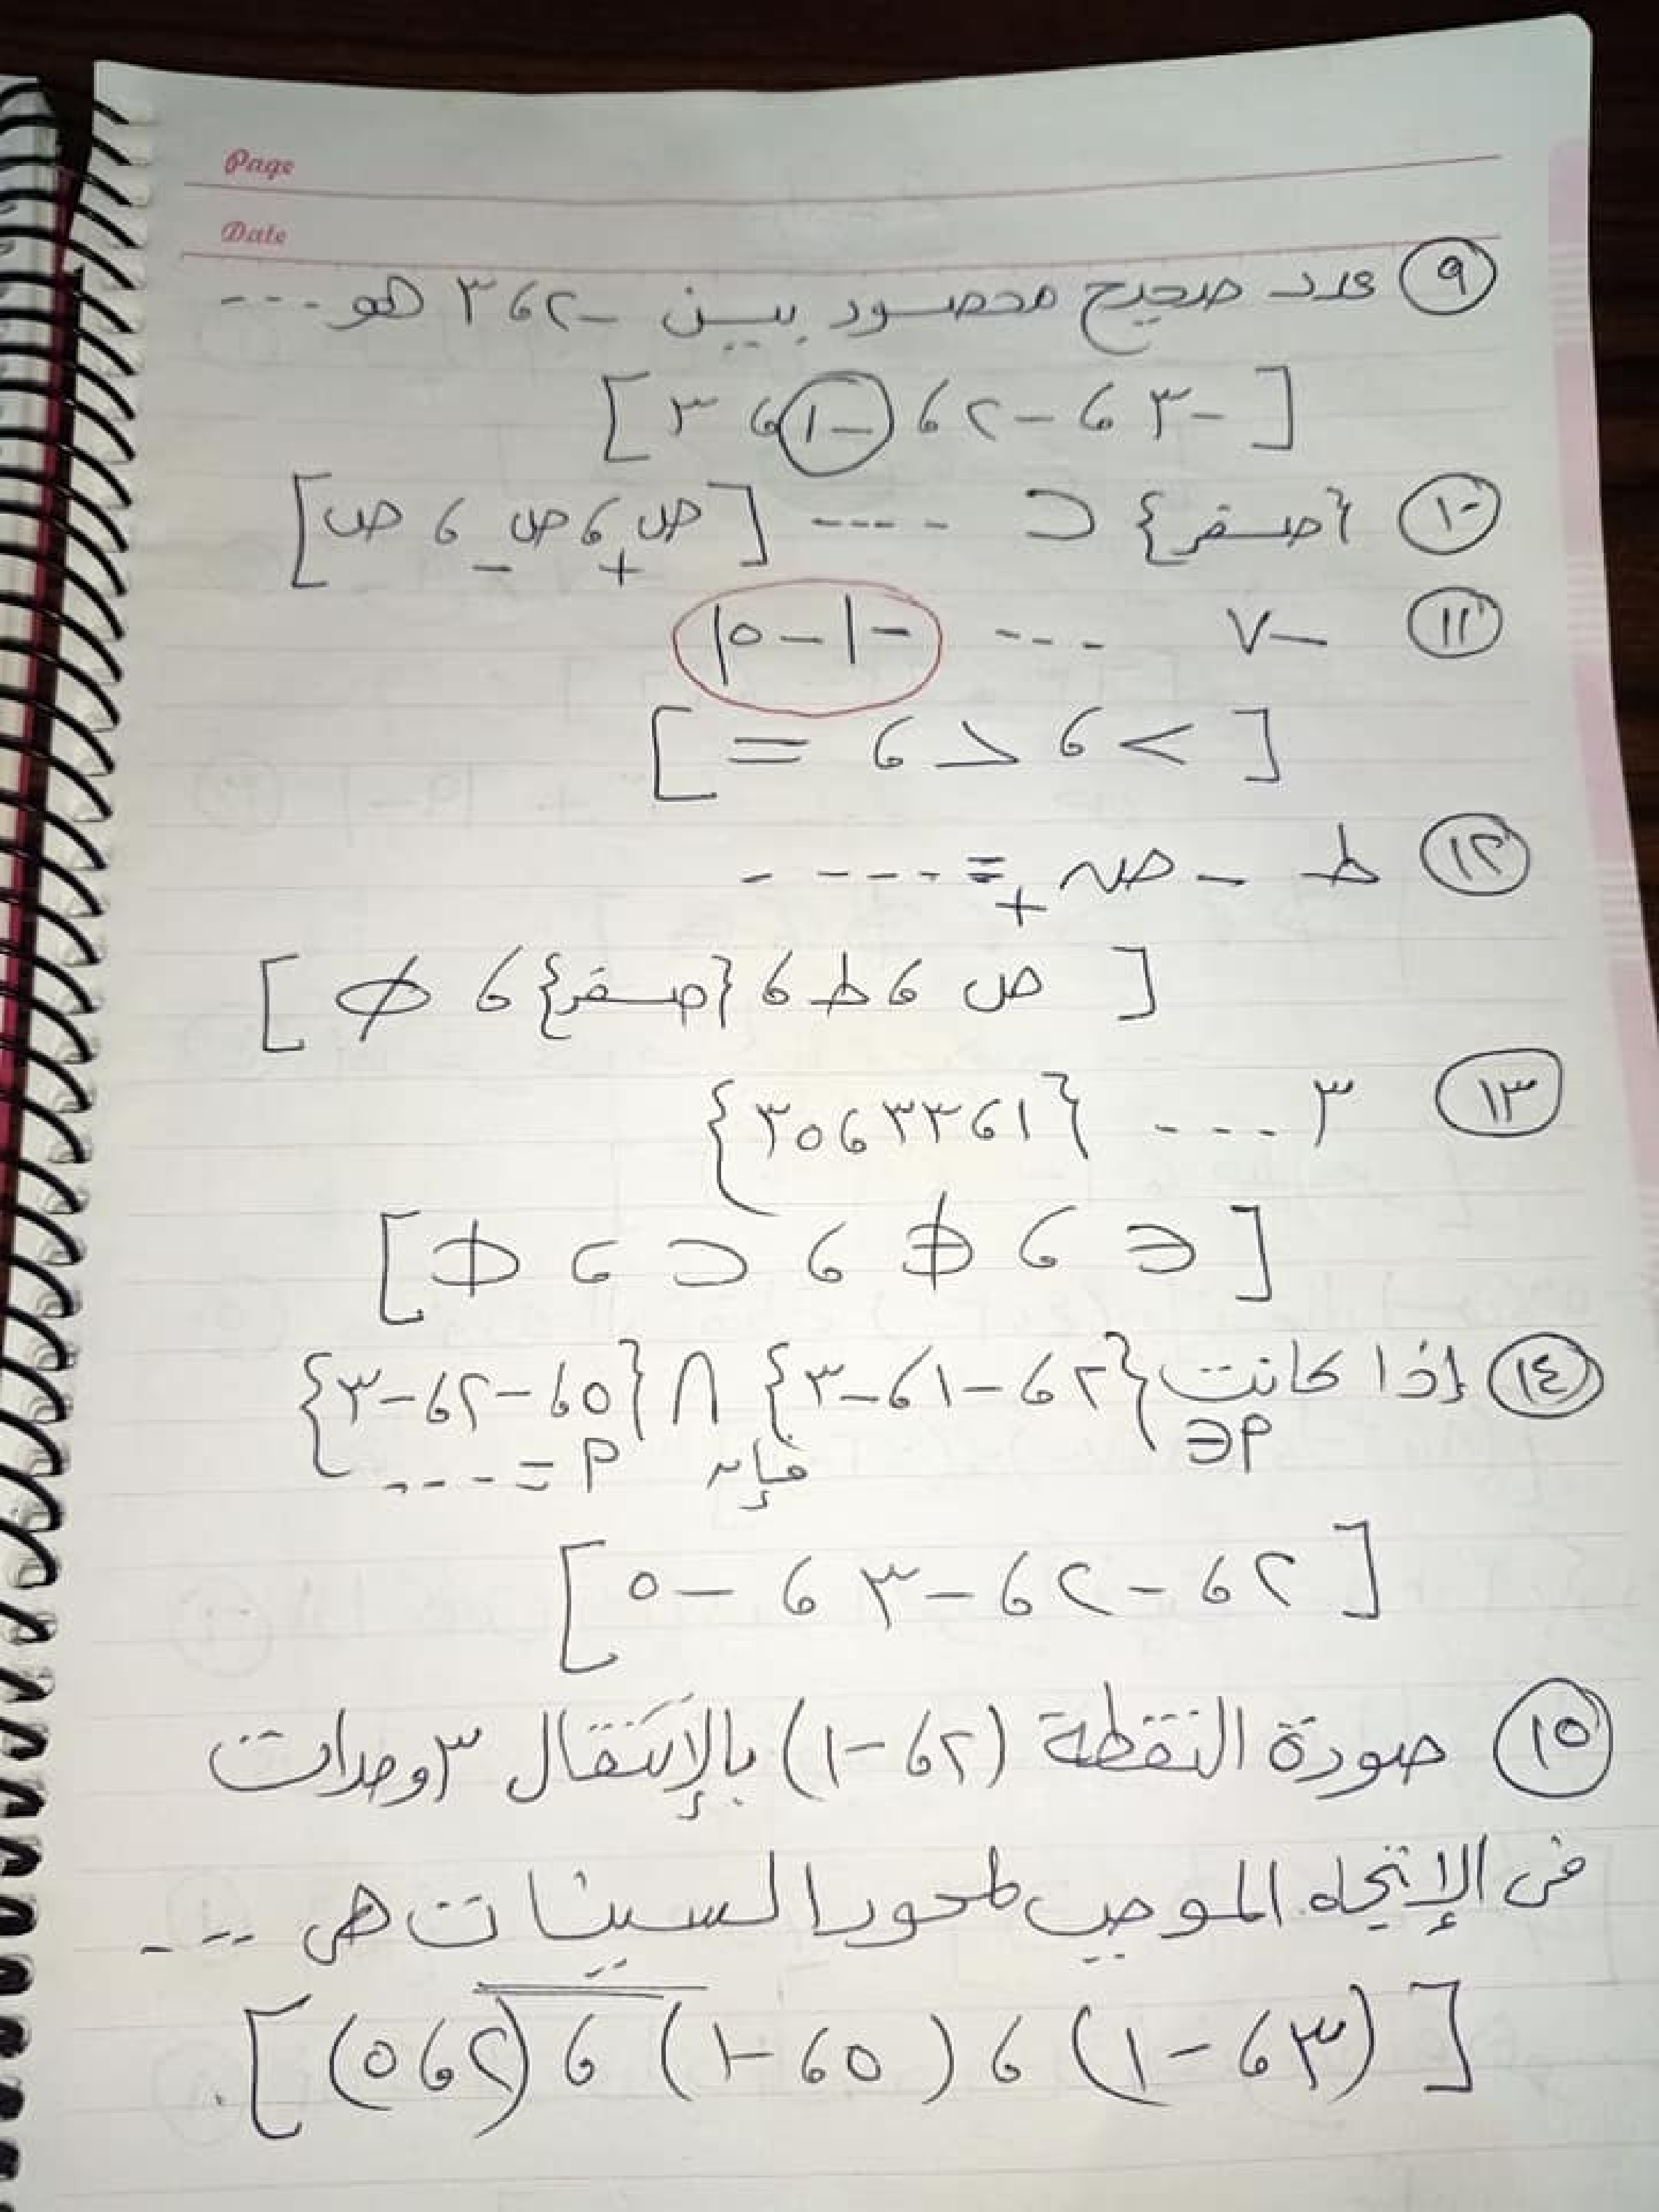 Page
Date
٩ عدد صحيح محصور بين -٢ ، ٣ هو ---
[ -٣ ، -٢ ، -١ ، ٣ ]
١٠ {صفر} ⊂ ---- [ ص+ ، ص- ، ص ]
١١ -٧ --- -|-٥|
[ > ، < ، = ]
١٢ ط - ص+ = ----
[ ص ، ط ، {صفر} ، ∅ ]
١٣ ٣ ---- {١ ، ٣٣ ، ٥٣}
[ ∈ ، ∉ ، ⊂ ، ⊄ ]
١٤ إذا كانت {٢ ، -١ ، -٣} ∩ {٥ ، -٢ ، -٣}
∋ م فإن م = ----
[ ٢ ، -٢ ، -٣ ، -٥ ]
١٥ صورة النقطة (٢ ، -١) بالإنتقال ٣ وحدات
فى الإتجاه الموجب لمحور السينات هى ---
[ (٣ ، -١) ، (٥ ، -١) ، (٢ ، ٥) ]